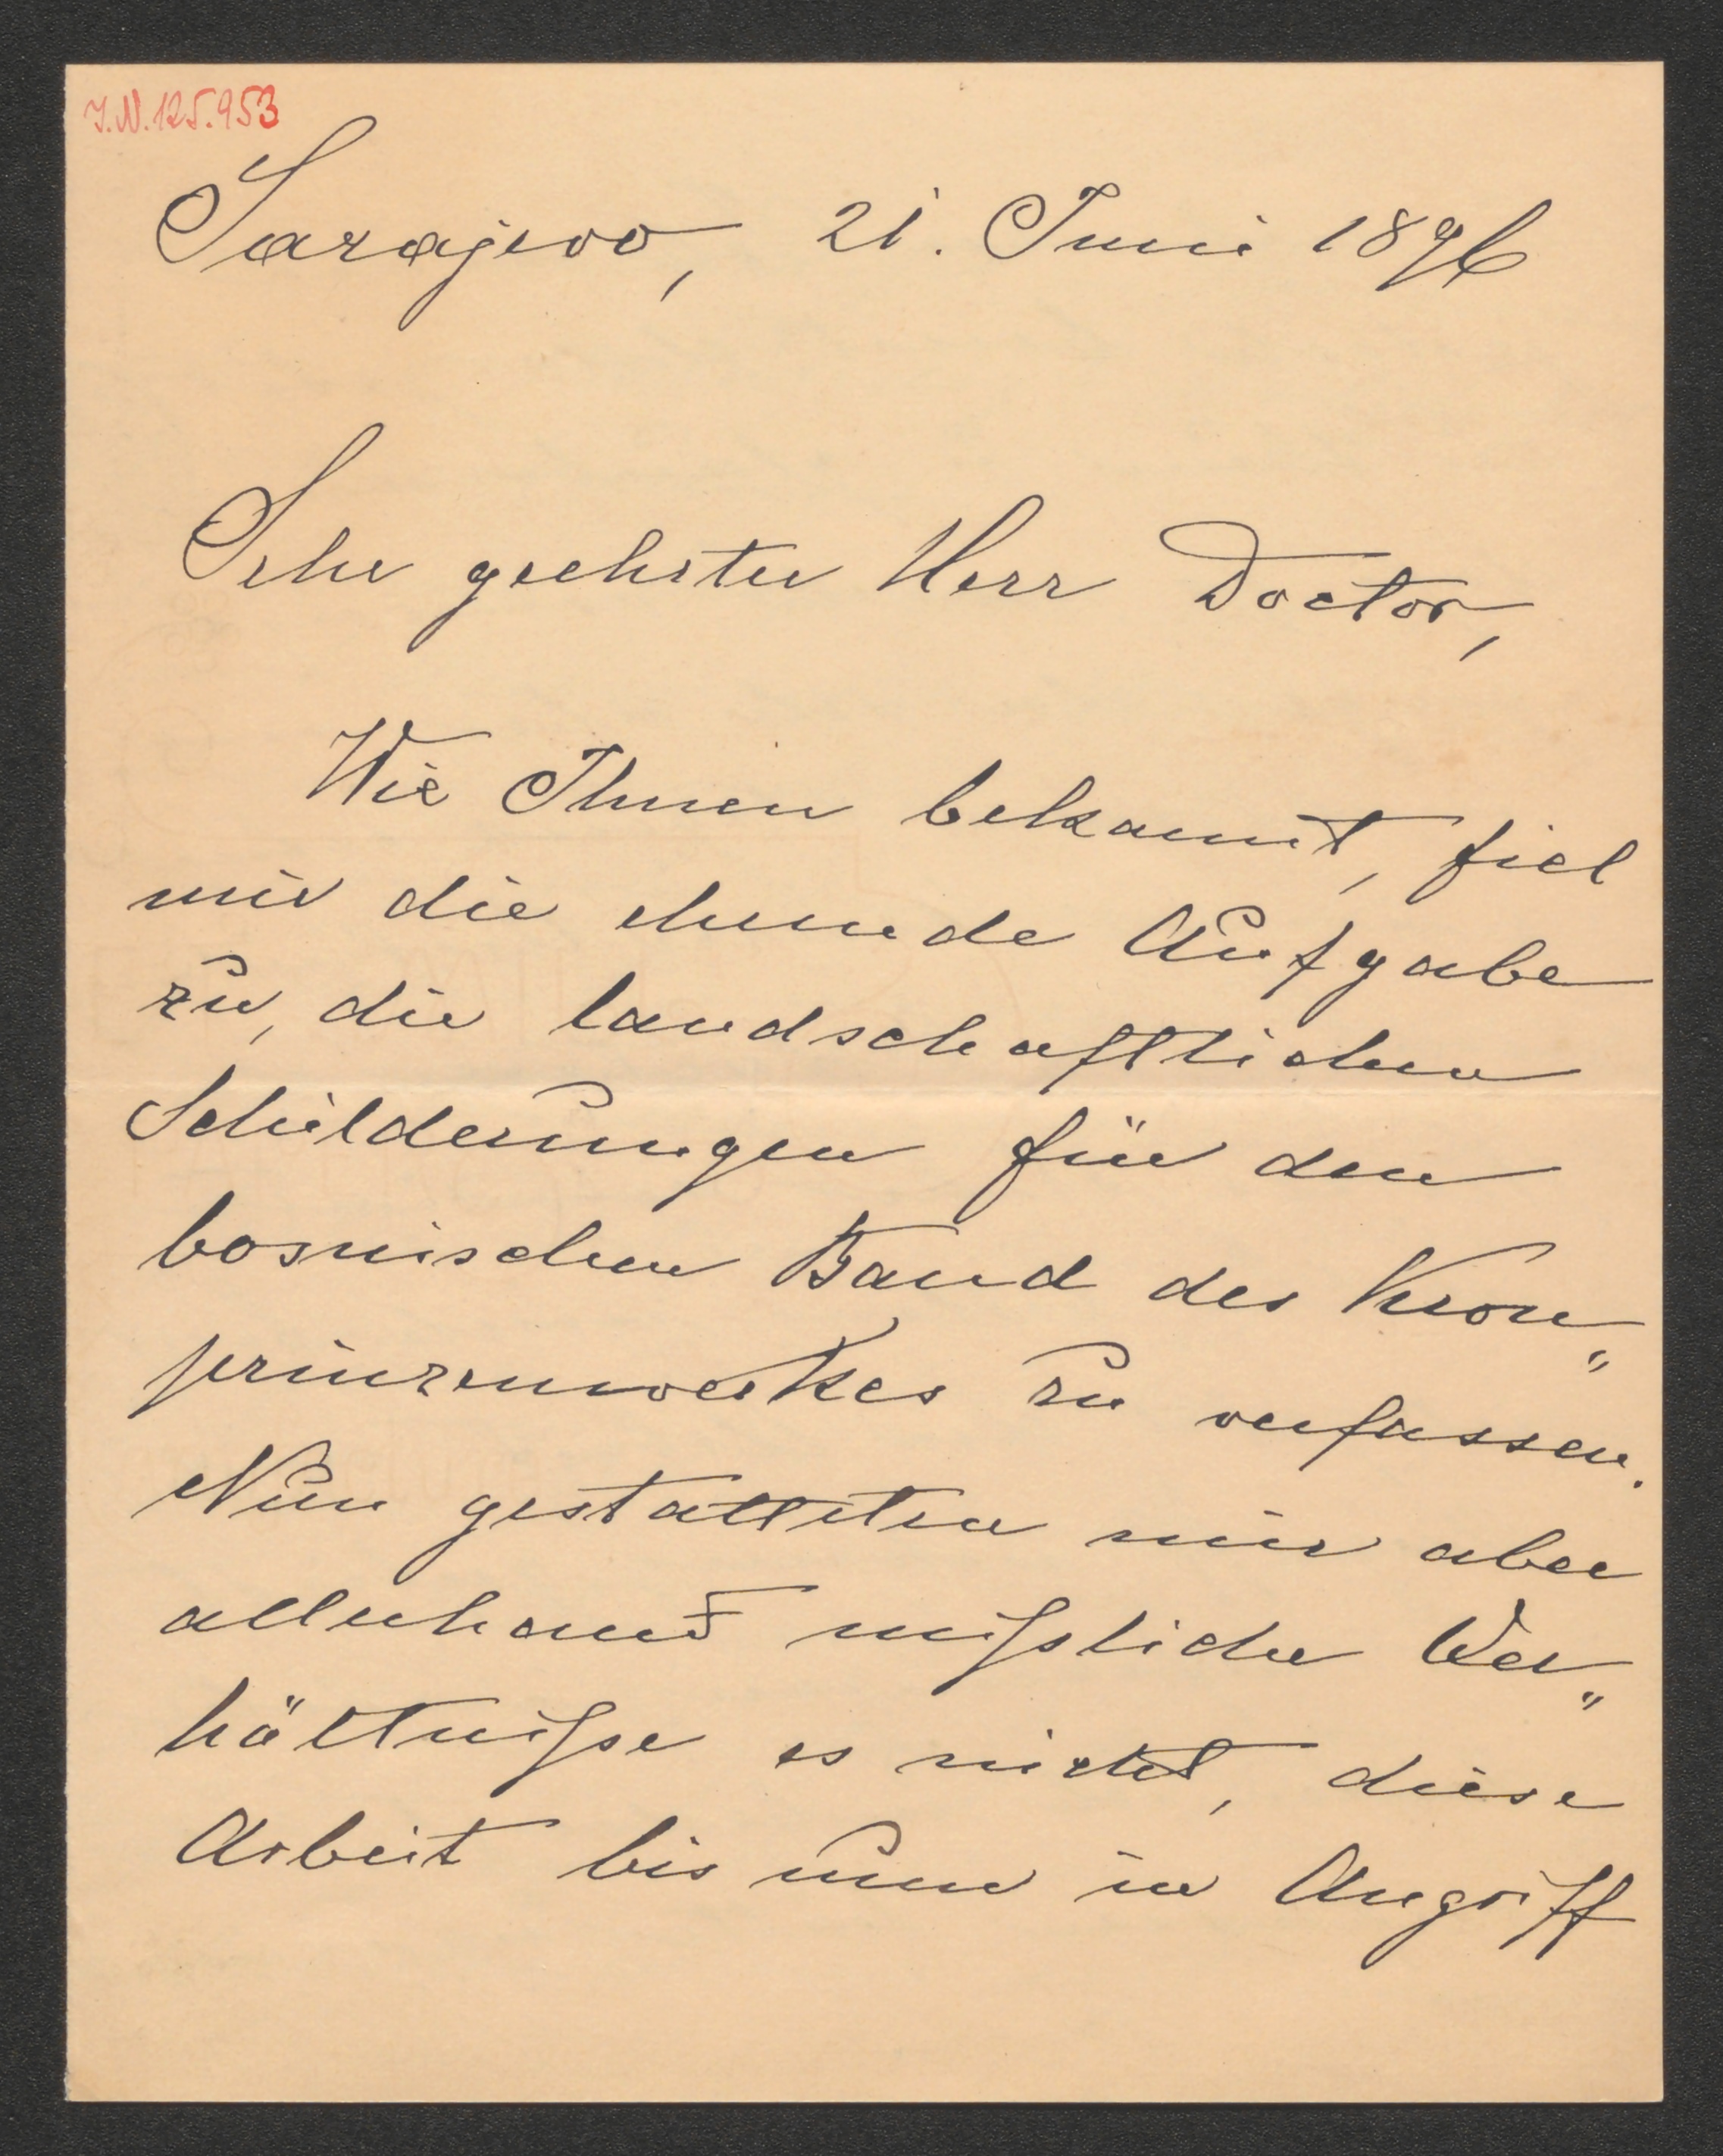 J.N. 125.953
Sarajevo, 21. Juni 1896
Sehr geehrter Herr Doctor,
Wie Ihnen bekannt, fiel
mir die ehrende Aufgabe
zu, die landschaftlichen
Schilderungen für den
bosnischen Band des Kron„
prinzenwerkes zu verfassen.
Nun gestatteten mir aber
allerhand mißliche Ver„
hältniße es nicht, diese
Arbeit bis nun in Angriff